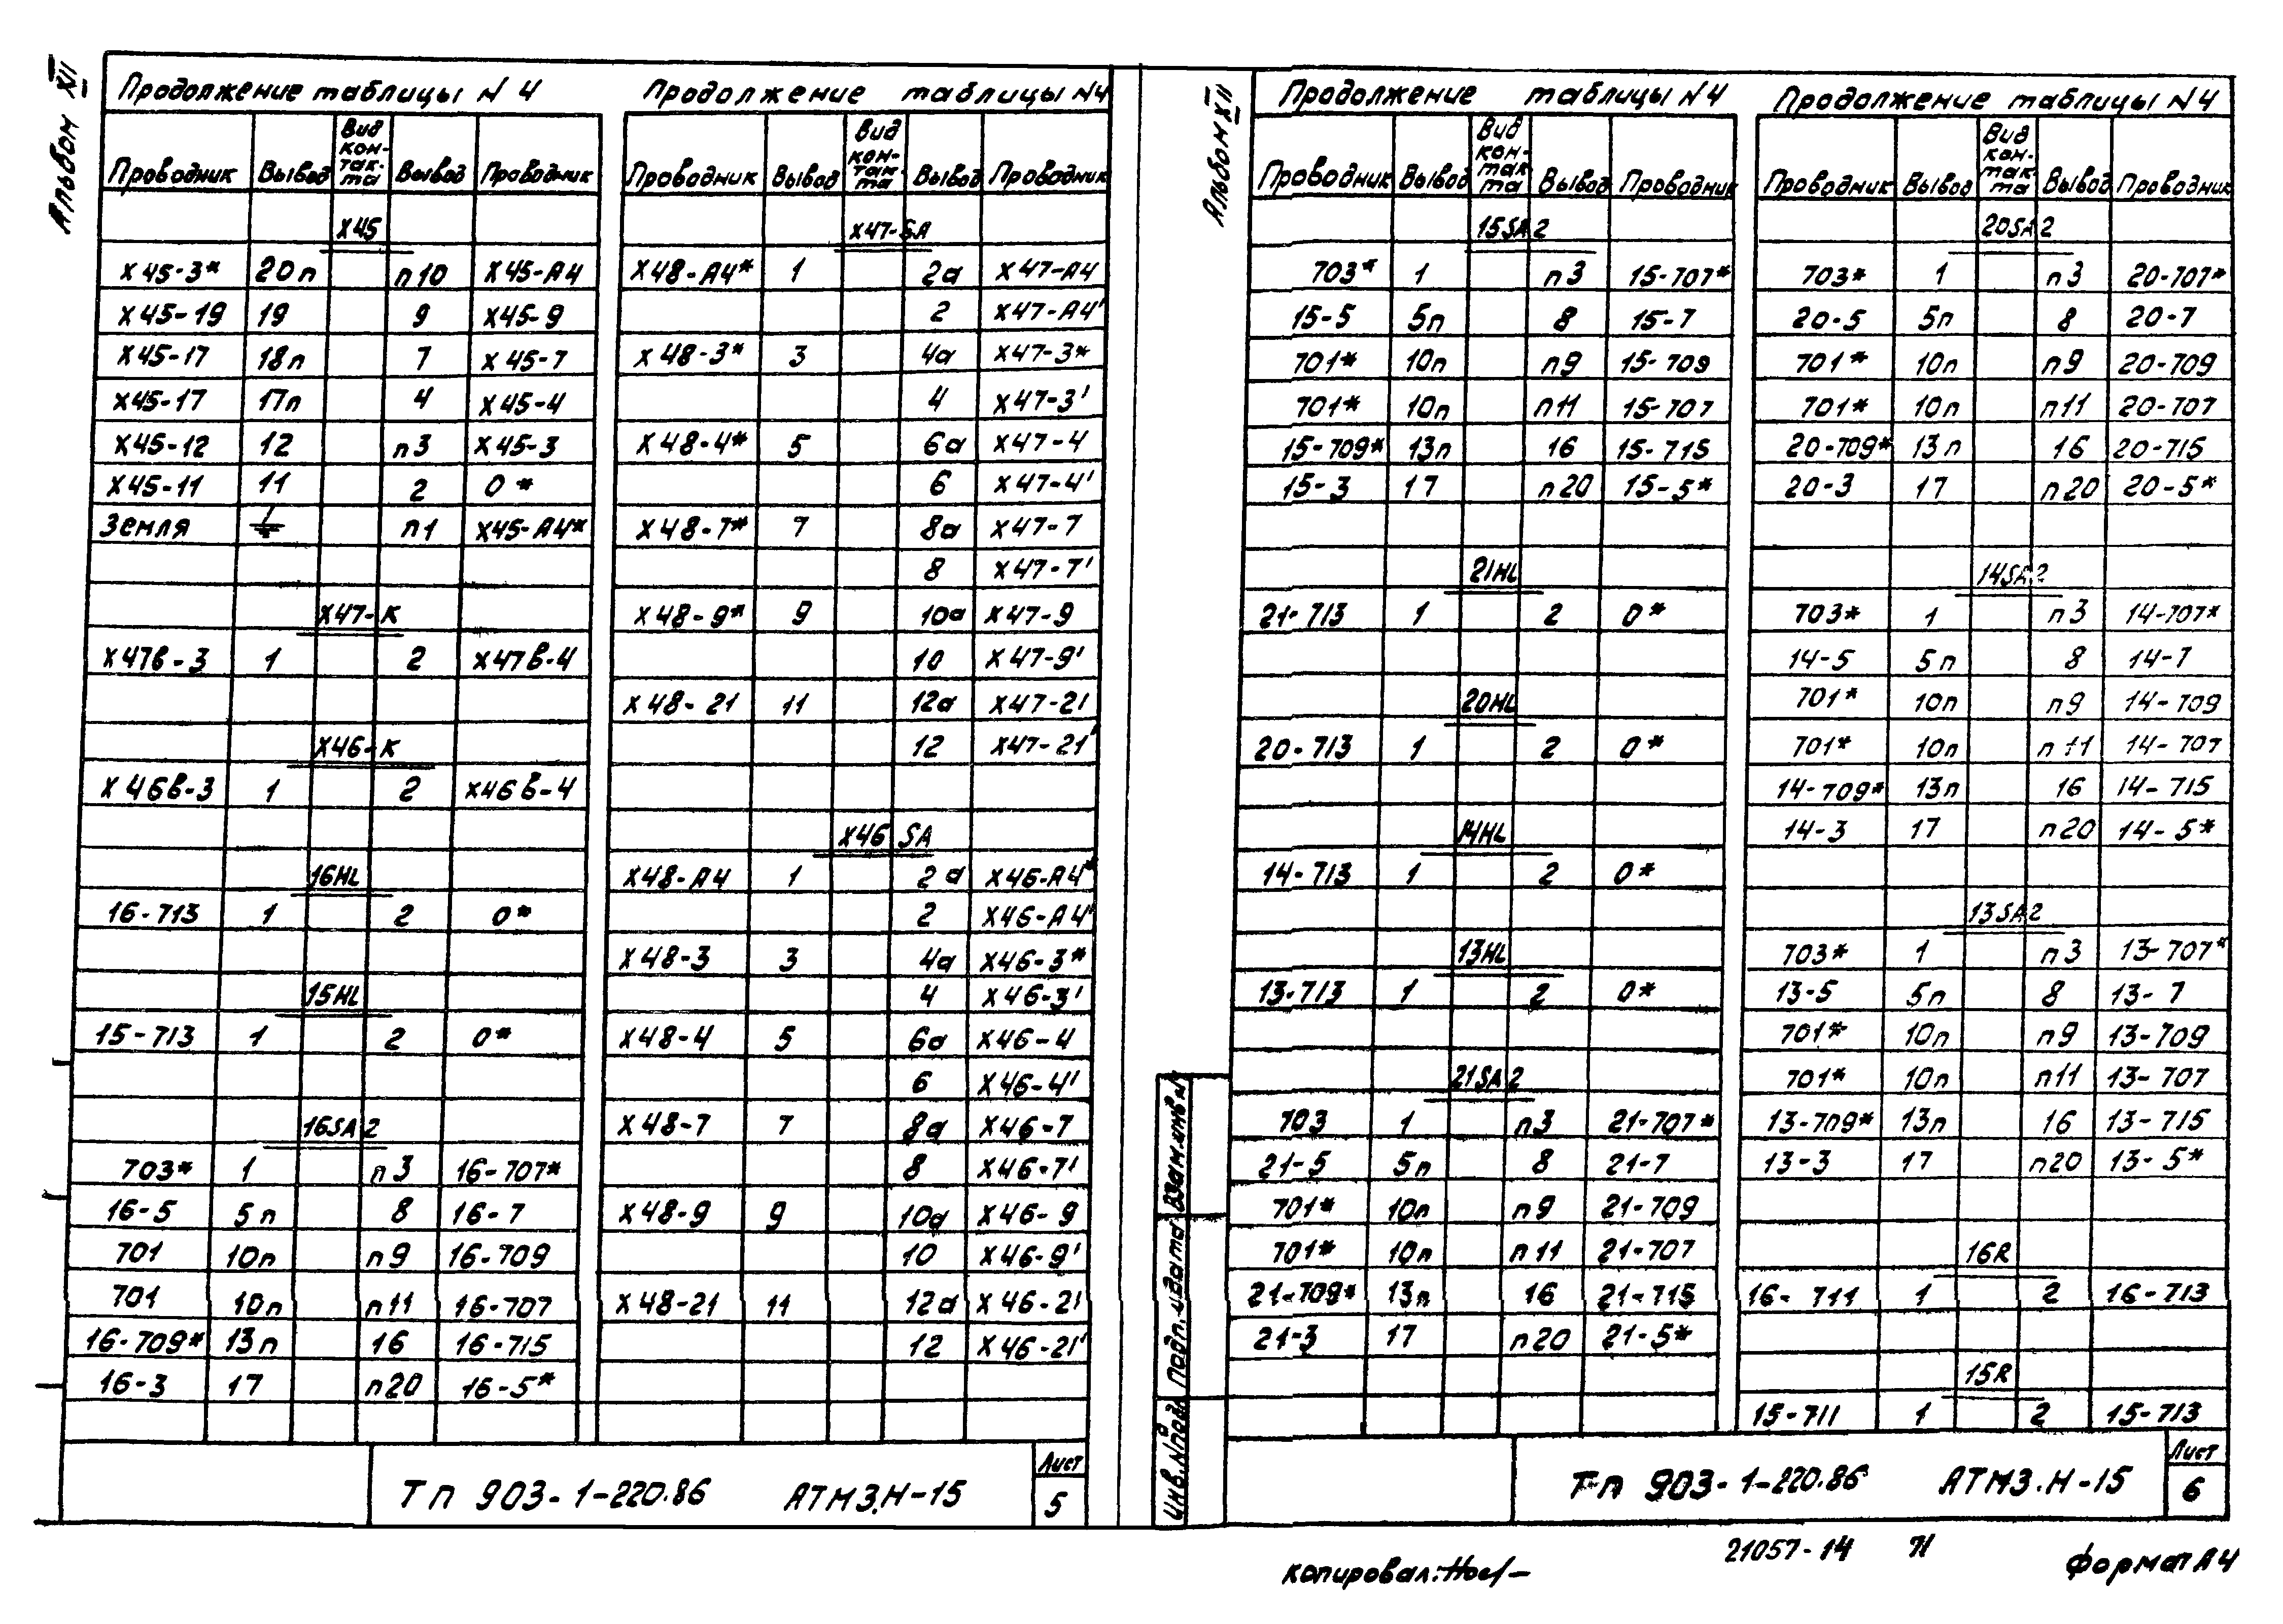 Альбом XII
Продолжение таблицы N 4
Проводник Вывод Вид кон-так-та Вывод Проводник
X45
X45-3* 20п п10 X45-А4
X45-19 19 9 X45-9
X45-17 18п 7 X45-7
X45-17 17п 4 X45-4
X45-12 12 п3 X45-3
X45-11 11 2 0*
Земля ⏚ п1 X45-А4*
X47-К
X47в-3 1 2 X47в-4
X46-К
X46в-3 1 2 X46в-4
16HL
16-713 1 2 0*
15HL
15-713 1 2 0*
16SA2
703* 1 п3 16-707*
16-5 5п 8 16-7
701 10п п9 16-709
701 10п п11 16-707
16-709* 13п 16 16-715
16-3 17 п20 16-5*
Продолжение таблицы N4
Проводник Вывод Вид кон-так-та Вывод Проводник
X47-SA
X48-А4* 1 2а X47-А4
2 X47-А4'
X48-3* 3 4а X47-3*
4 X47-3'
X48-4* 5 6а X47-4
6 X47-4'
X48-7* 7 8а X47-7
8 X47-7'
X48-9* 9 10а X47-9
10 X47-9'
X48-21 11 12а X47-21
12 X47-21'
X46 SA
X48-А4 1 2а X46-А4*
2 X46-А4'
X48-3 3 4а X46-3*
4 X46-3'
X48-4 5 6а X46-4
6 X46-4'
X48-7 7 8а X46-7
8 X46-7'
X48-9 9 10а X46-9
10 X46-9'
X48-21 11 12а X46-21
12 X46-21'
Тп 903-1-220.86 АТМ3.Н-15
Лист
5
Альбом XII
Продолжение таблицы N4
Проводник Вывод Вид кон-так-та Вывод Проводник
15SA2
703* 1 п3 15-707*
15-5 5п 8 15-7
701* 10п п9 15-709
701* 10п п11 15-707
15-709* 13п 16 15-715
15-3 17 п20 15-5*
21HL
21-713 1 2 0*
20HL
20-713 1 2 0*
14HL
14-713 1 2 0*
13HL
13-713 1 2 0*
21SA2
703 1 п3 21-707*
21-5 5п 8 21-7
701* 10п п9 21-709
701* 10п п11 21-707
21-709* 13п 16 21-715
21-3 17 п20 21-5*
Продолжение таблицы N4
Проводник Вывод Вид кон-так-та Вывод Проводник
20SA2
703* 1 п3 20-707*
20-5 5п 8 20-7
701* 10п п9 20-709
701* 10п п11 20-707
20-709* 13п 16 20-715
20-3 17 п20 20-5*
14SA2
703* 1 п3 14-707*
14-5 5п 8 14-7
701* 10п п9 14-709
701* 10п п11 14-707
14-709* 13п 16 14-715
14-3 17 п20 14-5*
13SA2
703* 1 п3 13-707*
13-5 5п 8 13-7
701* 10п п9 13-709
701* 10п п11 13-707
13-709* 13п 16 13-715
13-3 17 п20 13-5*
16R
16-711 1 2 16-713
15R
15-711 1 2 15-713
Взам.инв.N
Подп.и дата
Инв.Nподл
Тп 903-1-220.86 АТМ3.Н-15
Лист
6
Копировал:
21057-14 71
Формат А4